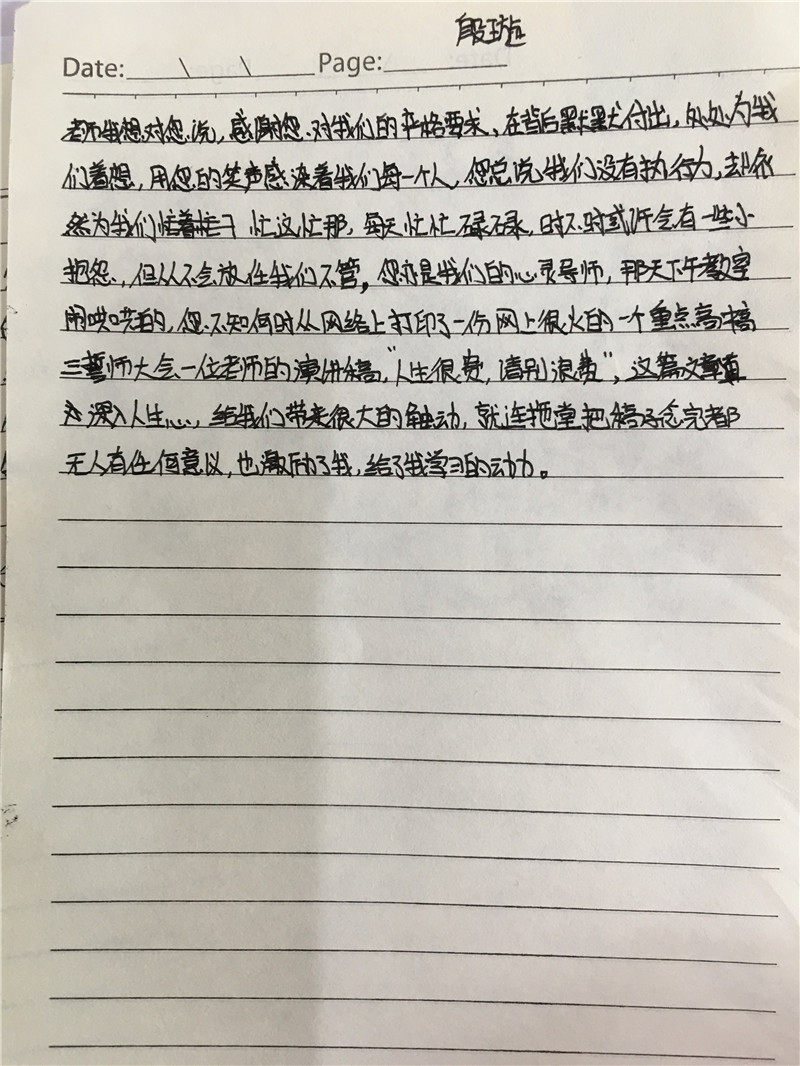 段璇
Date: \ \ Page:
老师我想对您说，感谢您对我们的严格要求，在背后默默付出，处处为我
们着想，用您的笑声感染着我们每一个人，您总说我们没有执行力，却依
然为我们忙这忙那，每天忙忙碌碌，时不时或许会有一些小
抱怨，但从不会放任我们不管，您亦是我们的心灵导师，那天下午教室
闹哄哄的，您不知何时从网络上打印了一份网上很火的一个重点高中高
三誓师大会一位老师的演讲稿，“人生很贵，请别浪费”，这篇文章
深入人心，给我们带来很大的触动，就连拖堂把稿子念完都
无人有任何意议，也激励了我，给了我学习的动力。